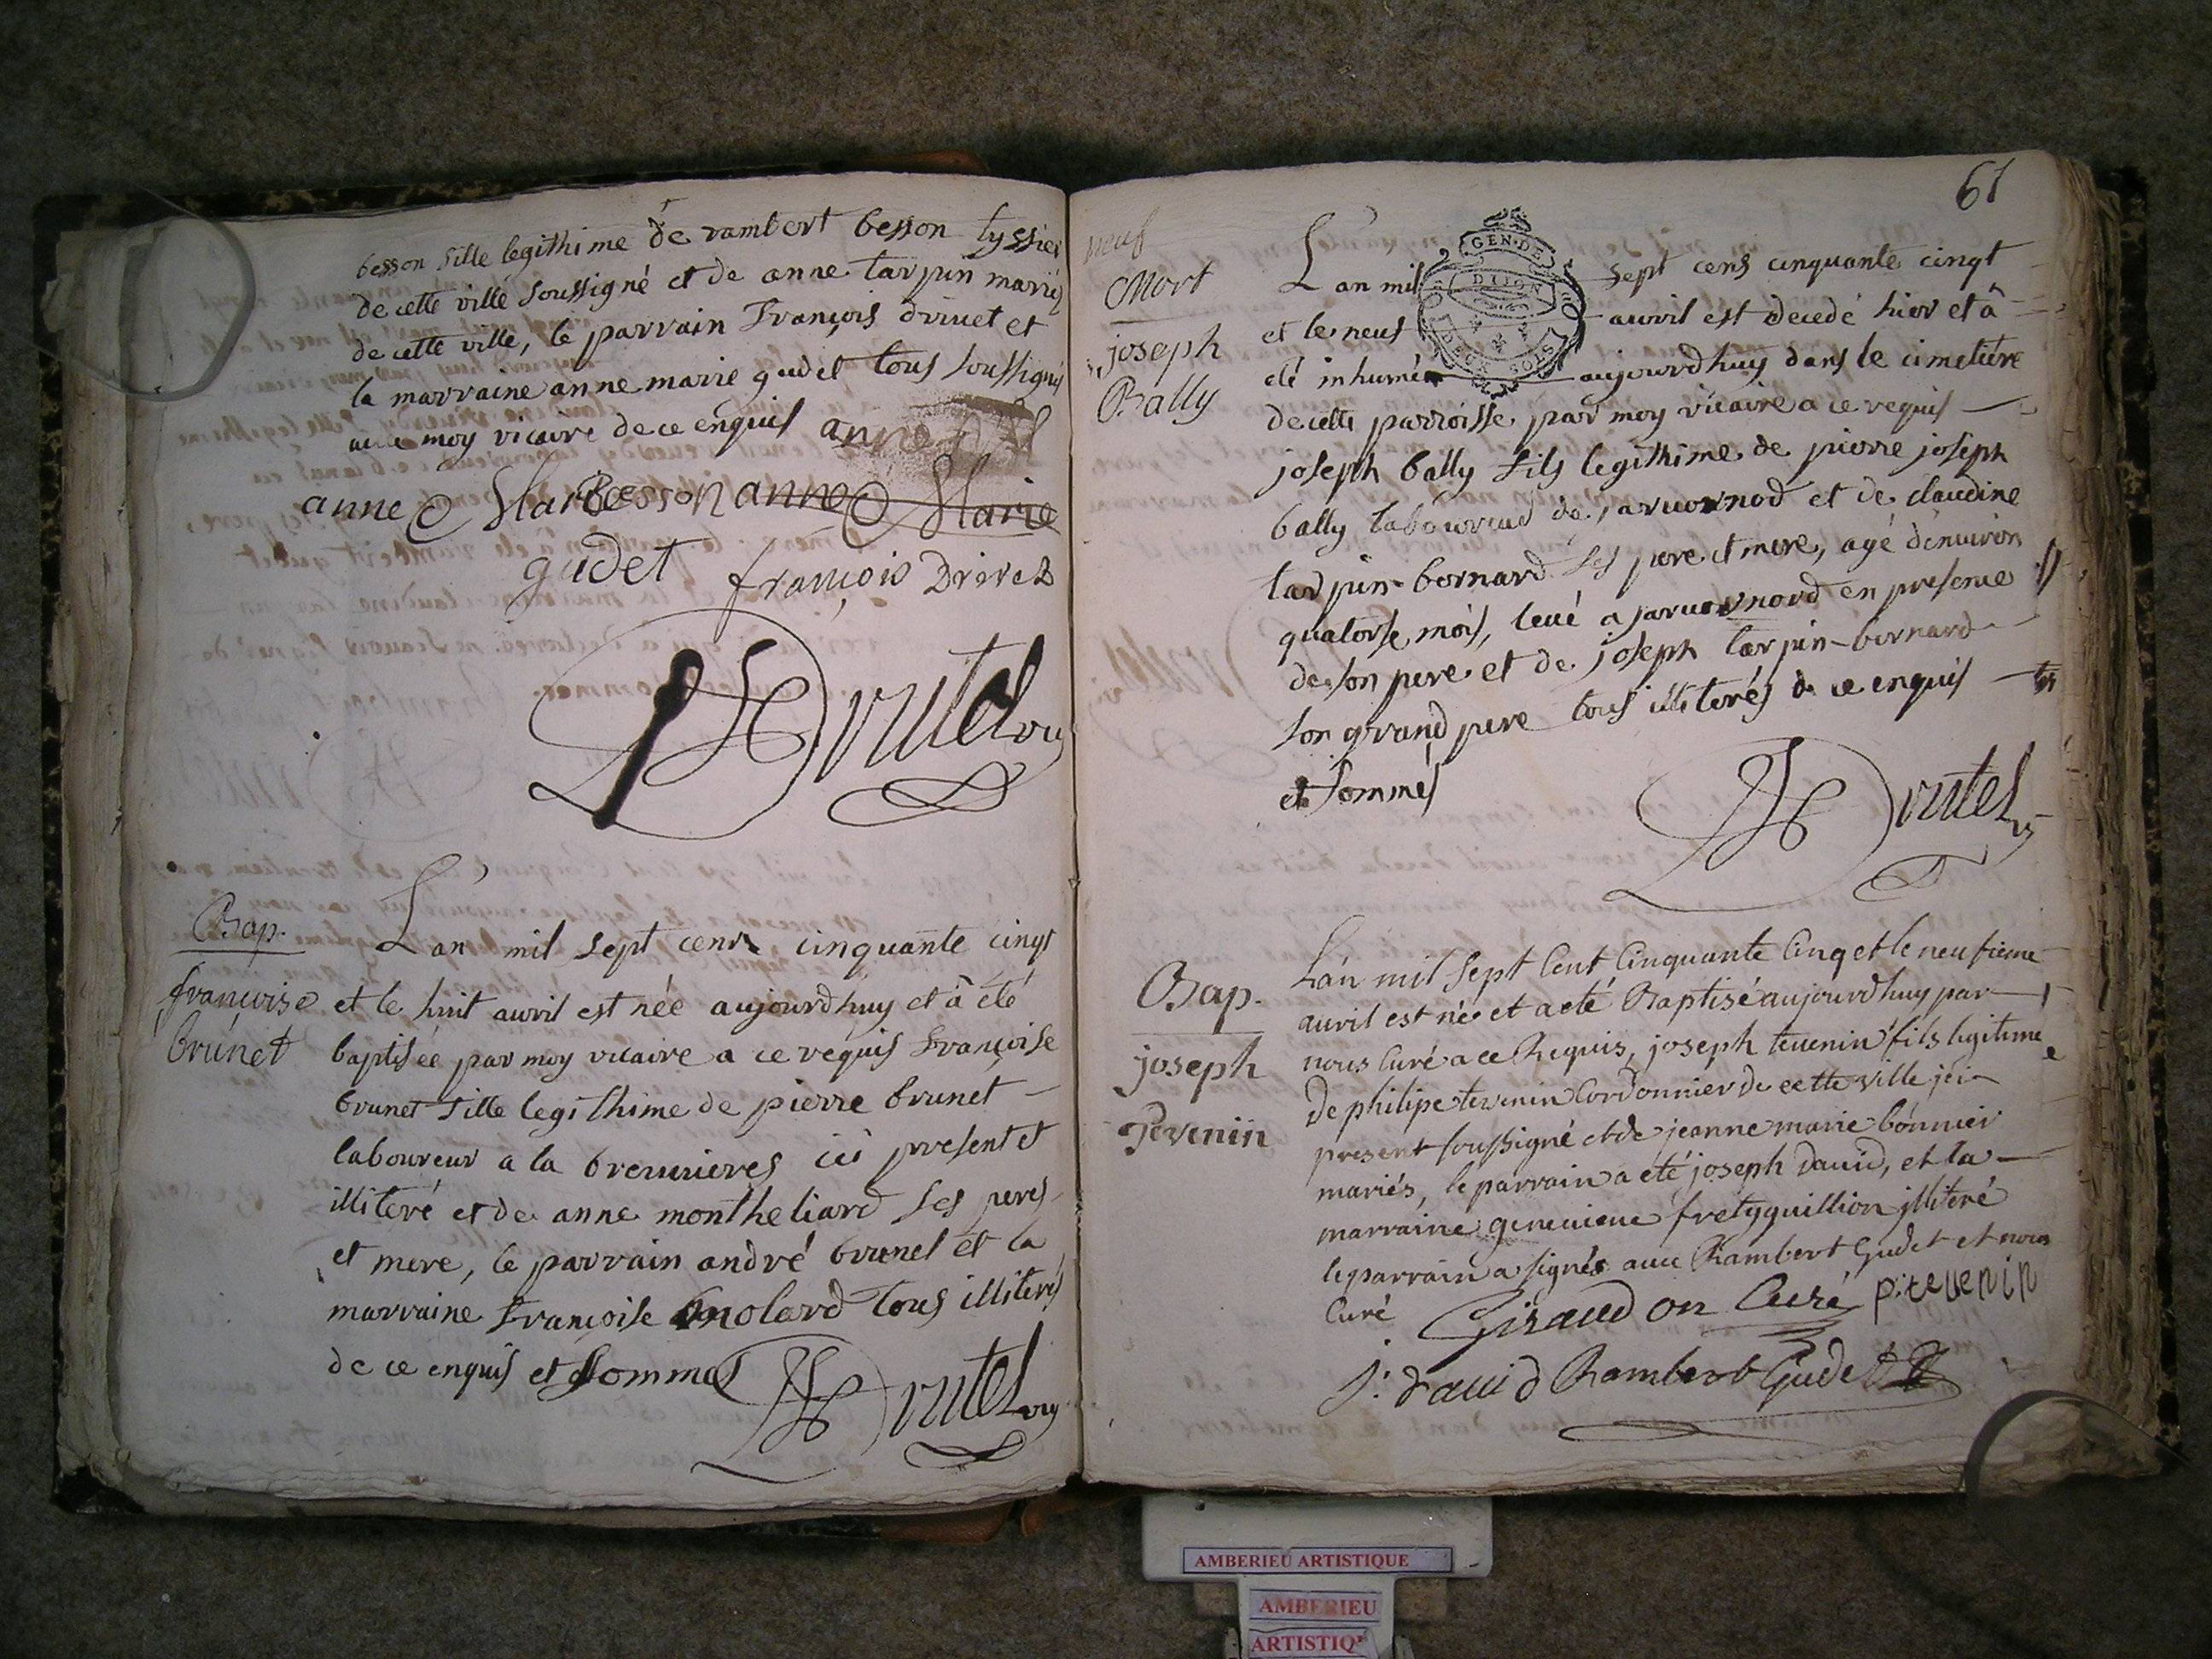 besson fille legithime de rambert besson tyssier
de cette ville soussigné et de anne tarpin mariés
de cette ville, le parrain François drivet et
la marraine anne marie gudet tous soussignés
avec moy vicaire de ce enquis anne
anne Marie Besson anne Marie
gudet françois Drivet
Drutel vic
Bap.
françoise
brunet
L'an mil sept cens cinquante cinqt
et le huit avril est née aujourdhuy et à été
baptisée par moy vicaire a ce requis Françoise
brunet fille legithime de pierre brunet
laboureur a la breunieres ici present et
illiteré et de anne montheliard ses peres
et mere, le parrain andré brunet et la
marraine Françoise molard tous illiterés
de ce enquis et sommés
Drutel vic
61
neuf
Mort
joseph
Bally
GEN·DE
DIJON
DEUX SOLS
L'an mil sept cens cinquante cinqt
et le neuf avril est decedé hier et à
été inhumé aujourdhuy dans le cimetiére
de cette parroisse par moy vicaire a ce requis
joseph bally fils legithime de pierre joseph
bally laboureur de jarvornod et de claudine
tarpin-bernard ses pere et mere, agé d'environ
quatorse mois, levé a jarvornod en presence
de son pere et de joseph tarpin-bernard
son grand pere tous illiterés de ce enquis
et sommés
Drutel vic
Bap.
joseph
Tevenin
L'an mil sept Cent Cinquante Cinq et le neufieme
avril est né et a eté Baptisé aujourdhuy par
nous Curé a ce Requis, joseph tevenin fils legitime
de philipe tevenin Cordonnier de cette ville ici
present soussigné et de jeanne marie bonnier
mariés, le parrain a eté joseph david, et la
marraine genevieve fretyguillion illiteré
le parrain a signés avec Rambert Gudet et nous
Curé Giraudon Curé p: tevenin
j: david Rambert Gudet
AMBERIEU ARTISTIQUE
AMBERIEU
ARTISTIQ